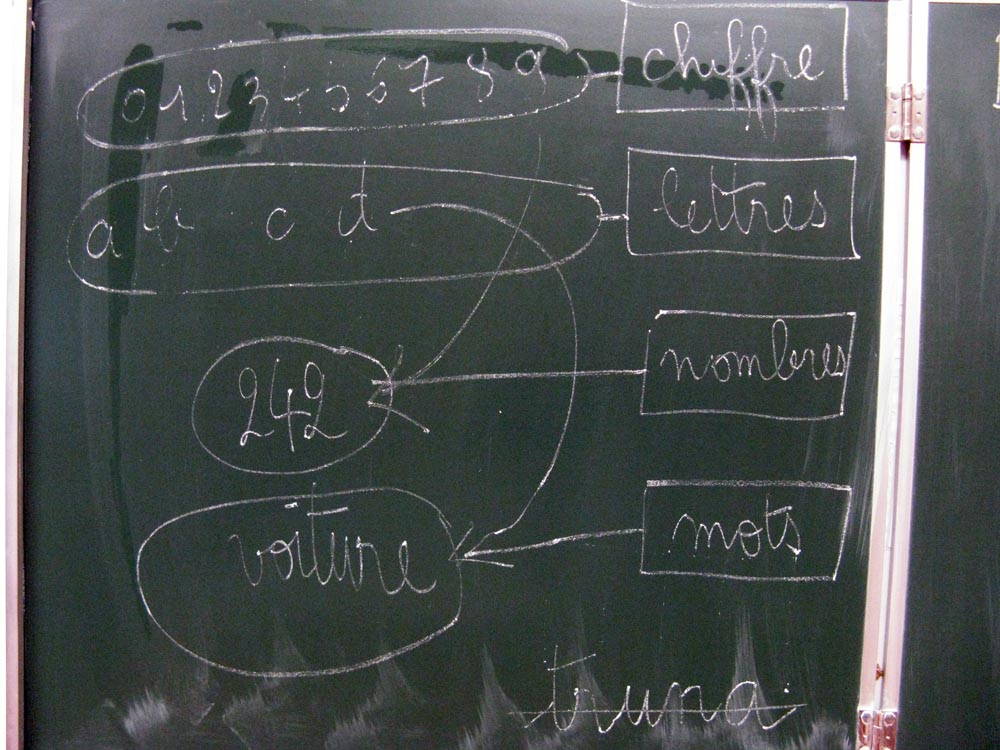 0 1 2 3 4 5 6 7 8 9 chiffre
a b c d lettres
242 nombres
voiture mots